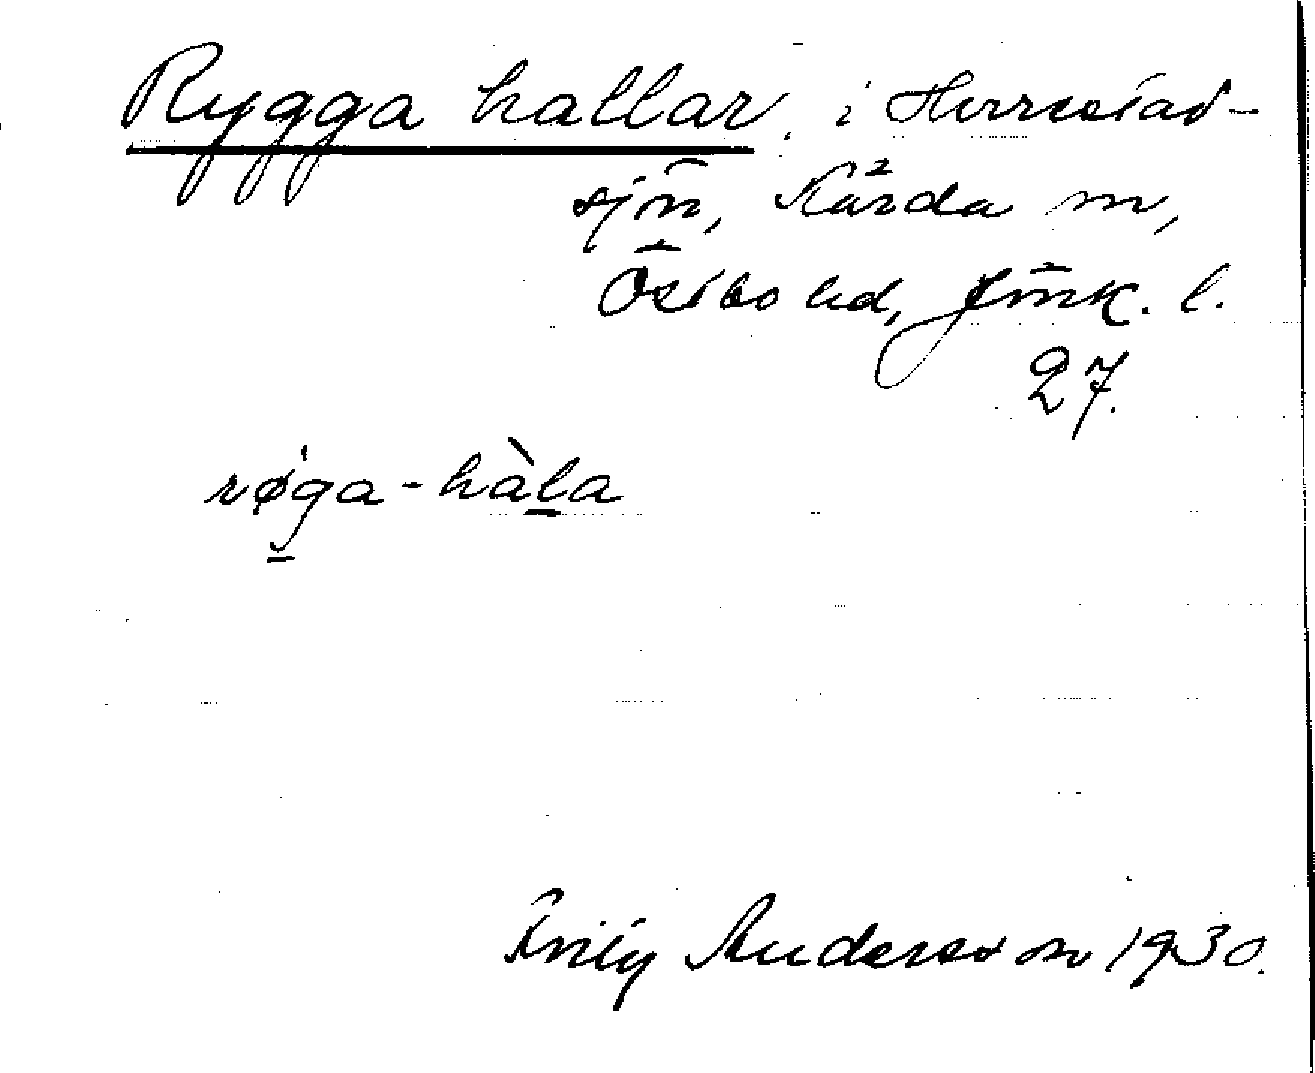 Rygga hallar. i Herrestad-
sjön, Kärda sn,
Östbo hd, Jönk. l.
27.
røga-hàla
Emily Andersson 1930.